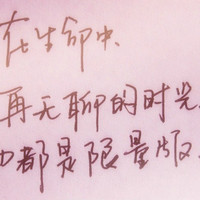 在生命中、
再无聊的时光,
也都是限量版.